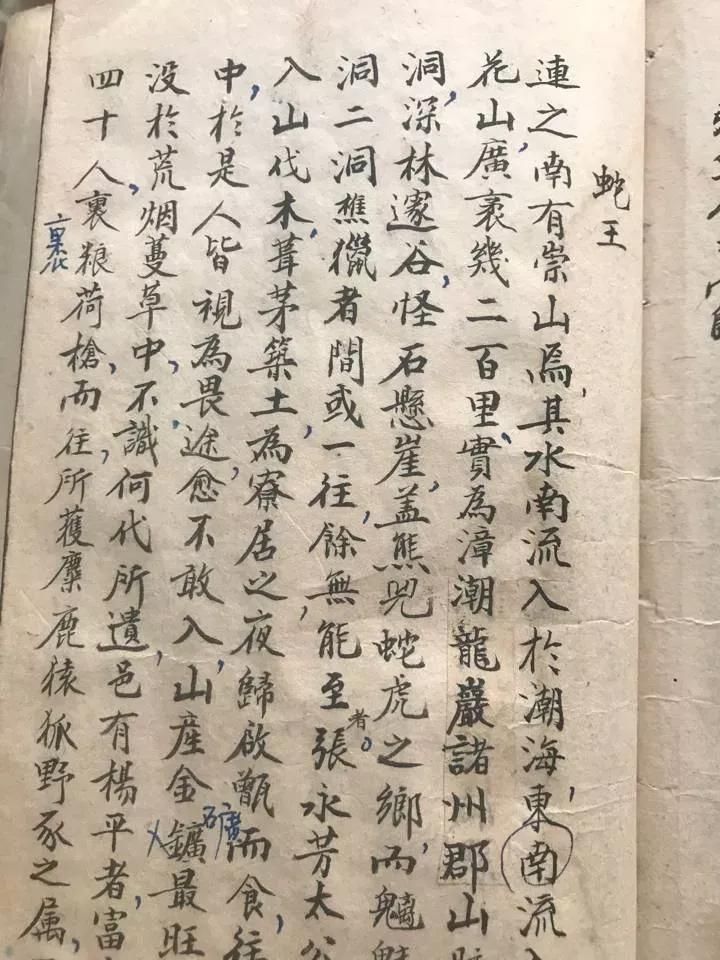 蛇王
連之南有崇山焉,其水南流入於潮海,東南流
花山,廣袤幾二百里,實為漳潮龍巖諸州郡山
洞,深林邃谷,怪石懸崖,盖熊兕蛇虎之鄉,而魑
洞二洞樵獵者間或一往,餘無能至者。張永芳太公
入山伐木,葺茅築土為寮居之,夜歸啟甑而食,往
中,於是人皆視為畏途,愈不敢入,山產金鑛最旺
礦
没於荒烟蔓草中,不識何代所遺,邑有楊平者,富
四十人裏粮荷槍,而往所獲麋鹿猿狐野豕之属,
裹